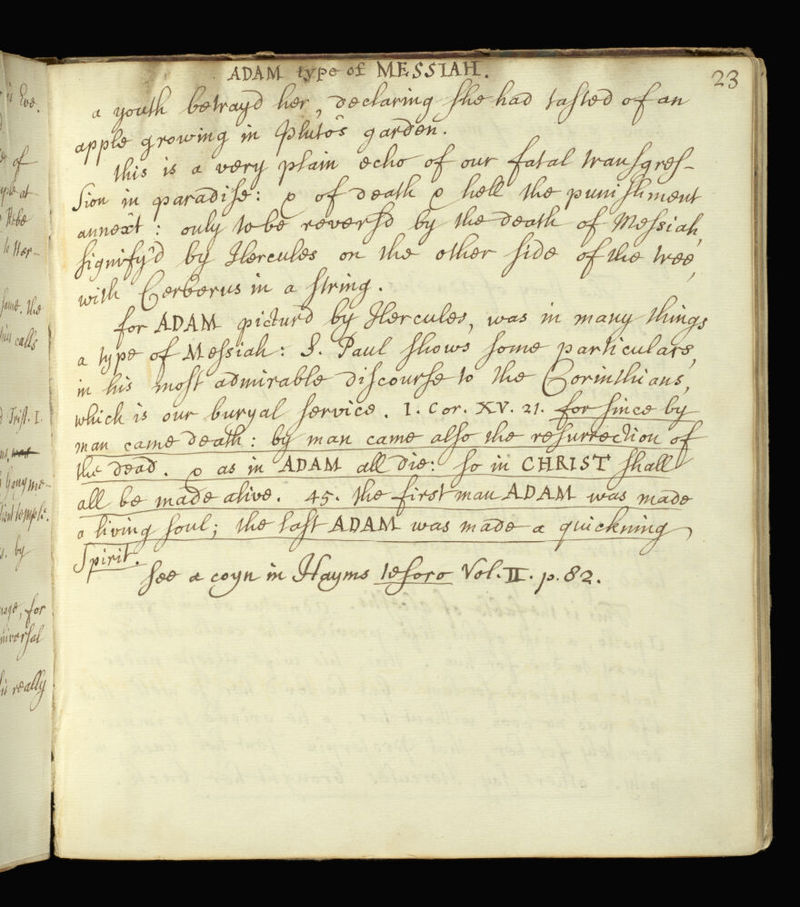 ADAM type of MESSIAH.
23
a youth betrayd her, declaring she had tasted of an
apple growing in Pluto's garden.
this is a very plain echo of our fatal transgres-
sion in paradise: & of death & hell the punishment
annext: only to be reversd by the death of Messiah,
signify'd by Hercules on the other side of the tree,
with Cerberus in a string.
for ADAM picturd by Hercules, was in many things
a type of Messiah: S. Paul shows some particulars,
in his most admirable discourse to the Corinthians,
which is our buryal service. 1. Cor. XV. 21. for since by
man came death: by man came also the resurrection of
the dead. & as in ADAM all die: so in CHRIST shall
all be made alive. 45. the first man ADAM was made
a living soul; the last ADAM was made a quickning
Spirit.
see a coyn in Hayms tesoro Vol. II. p. 82.